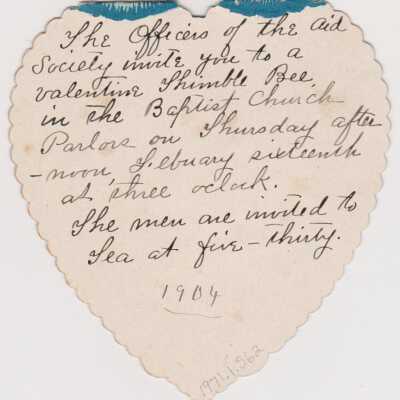 The Officers of the Aid
Society invite you to a
valentine Thimble Bee
in the Baptist Church
Parlors on Thursday after
-noon, Febuary sixteenth
at three oclock.
The men are invited to
Tea at five-thirty.
1904
1971.1.962